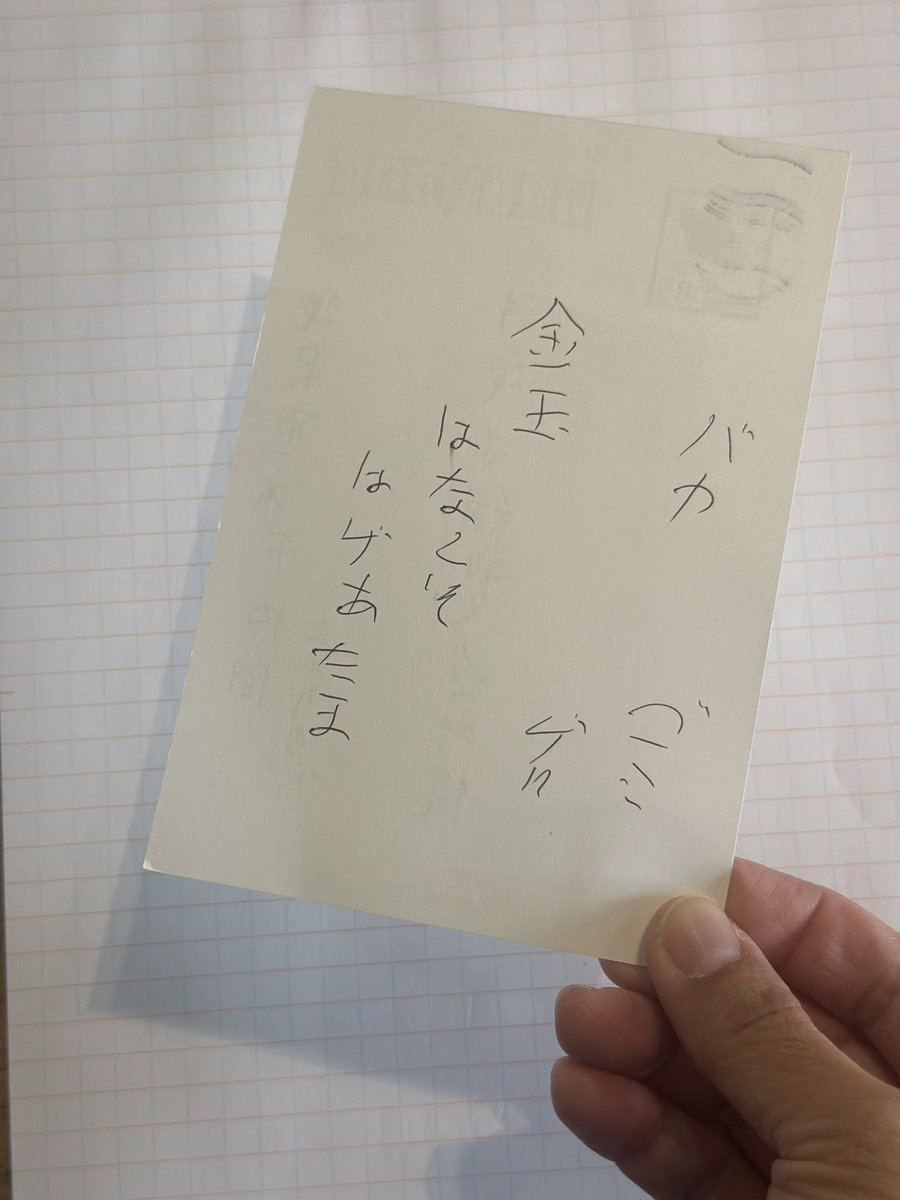 バカ
ゴミ
金玉
ゲリ
はなくそ
はゲあたま